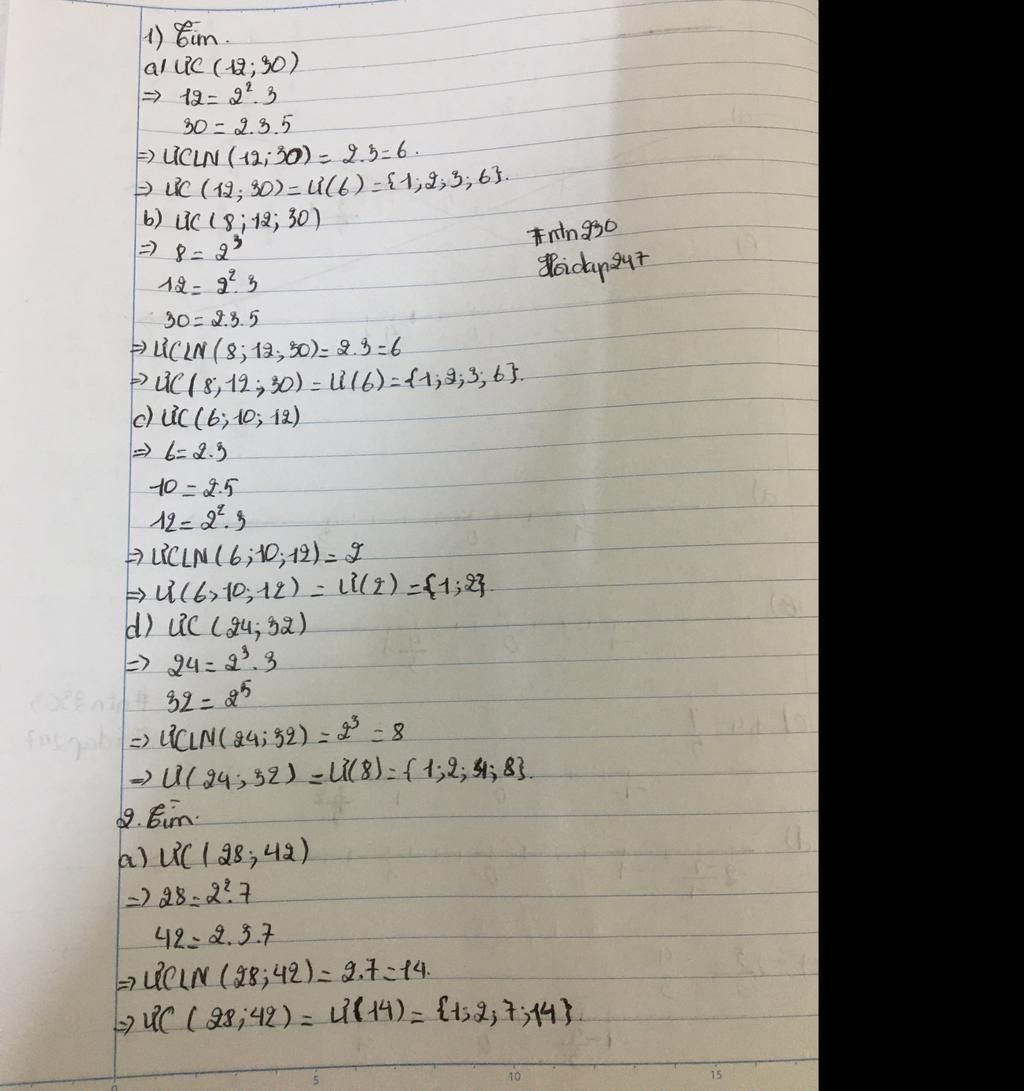 1) Tìm.
a) ƯC (12; 30)
=> 12 = 2². 3
30 = 2.3.5
=> ƯCLN (12; 30) = 2.3 = 6.
=> ƯC (12; 30) = Ư(6) = {1; 2; 3; 6}.
b) ƯC (8; 12; 30)
#ntn230
=> 8 = 2³
#hoidap247
12 = 2². 3
30 = 2.3.5
=> ƯCLN (8; 12; 30) = 2.3 = 6
=> ƯC (8; 12; 30) = Ư(6) = {1; 2; 3; 6}.
c) ƯC (6; 10; 12)
=> 6 = 2.3
10 = 2.5
12 = 2². 3
=> ƯCLN (6; 10; 12) = 2
=> Ư(6; 10; 12) = Ư(2) = {1; 2}.
d) ƯC (24; 32)
=> 24 = 2³. 3
32 = 2⁵
=> ƯCLN (24; 32) = 2³ = 8
=> Ư(24; 32) = Ư(8) = {1; 2; 4; 8}.
2. Tìm.
a) ƯC (28; 42)
=> 28 = 2². 7
42 = 2.3.7
=> ƯCLN (28; 42) = 2.7 = 14.
=> ƯC (28; 42) = Ư(14) = {1; 2; 7; 14}.
0 5 10 15